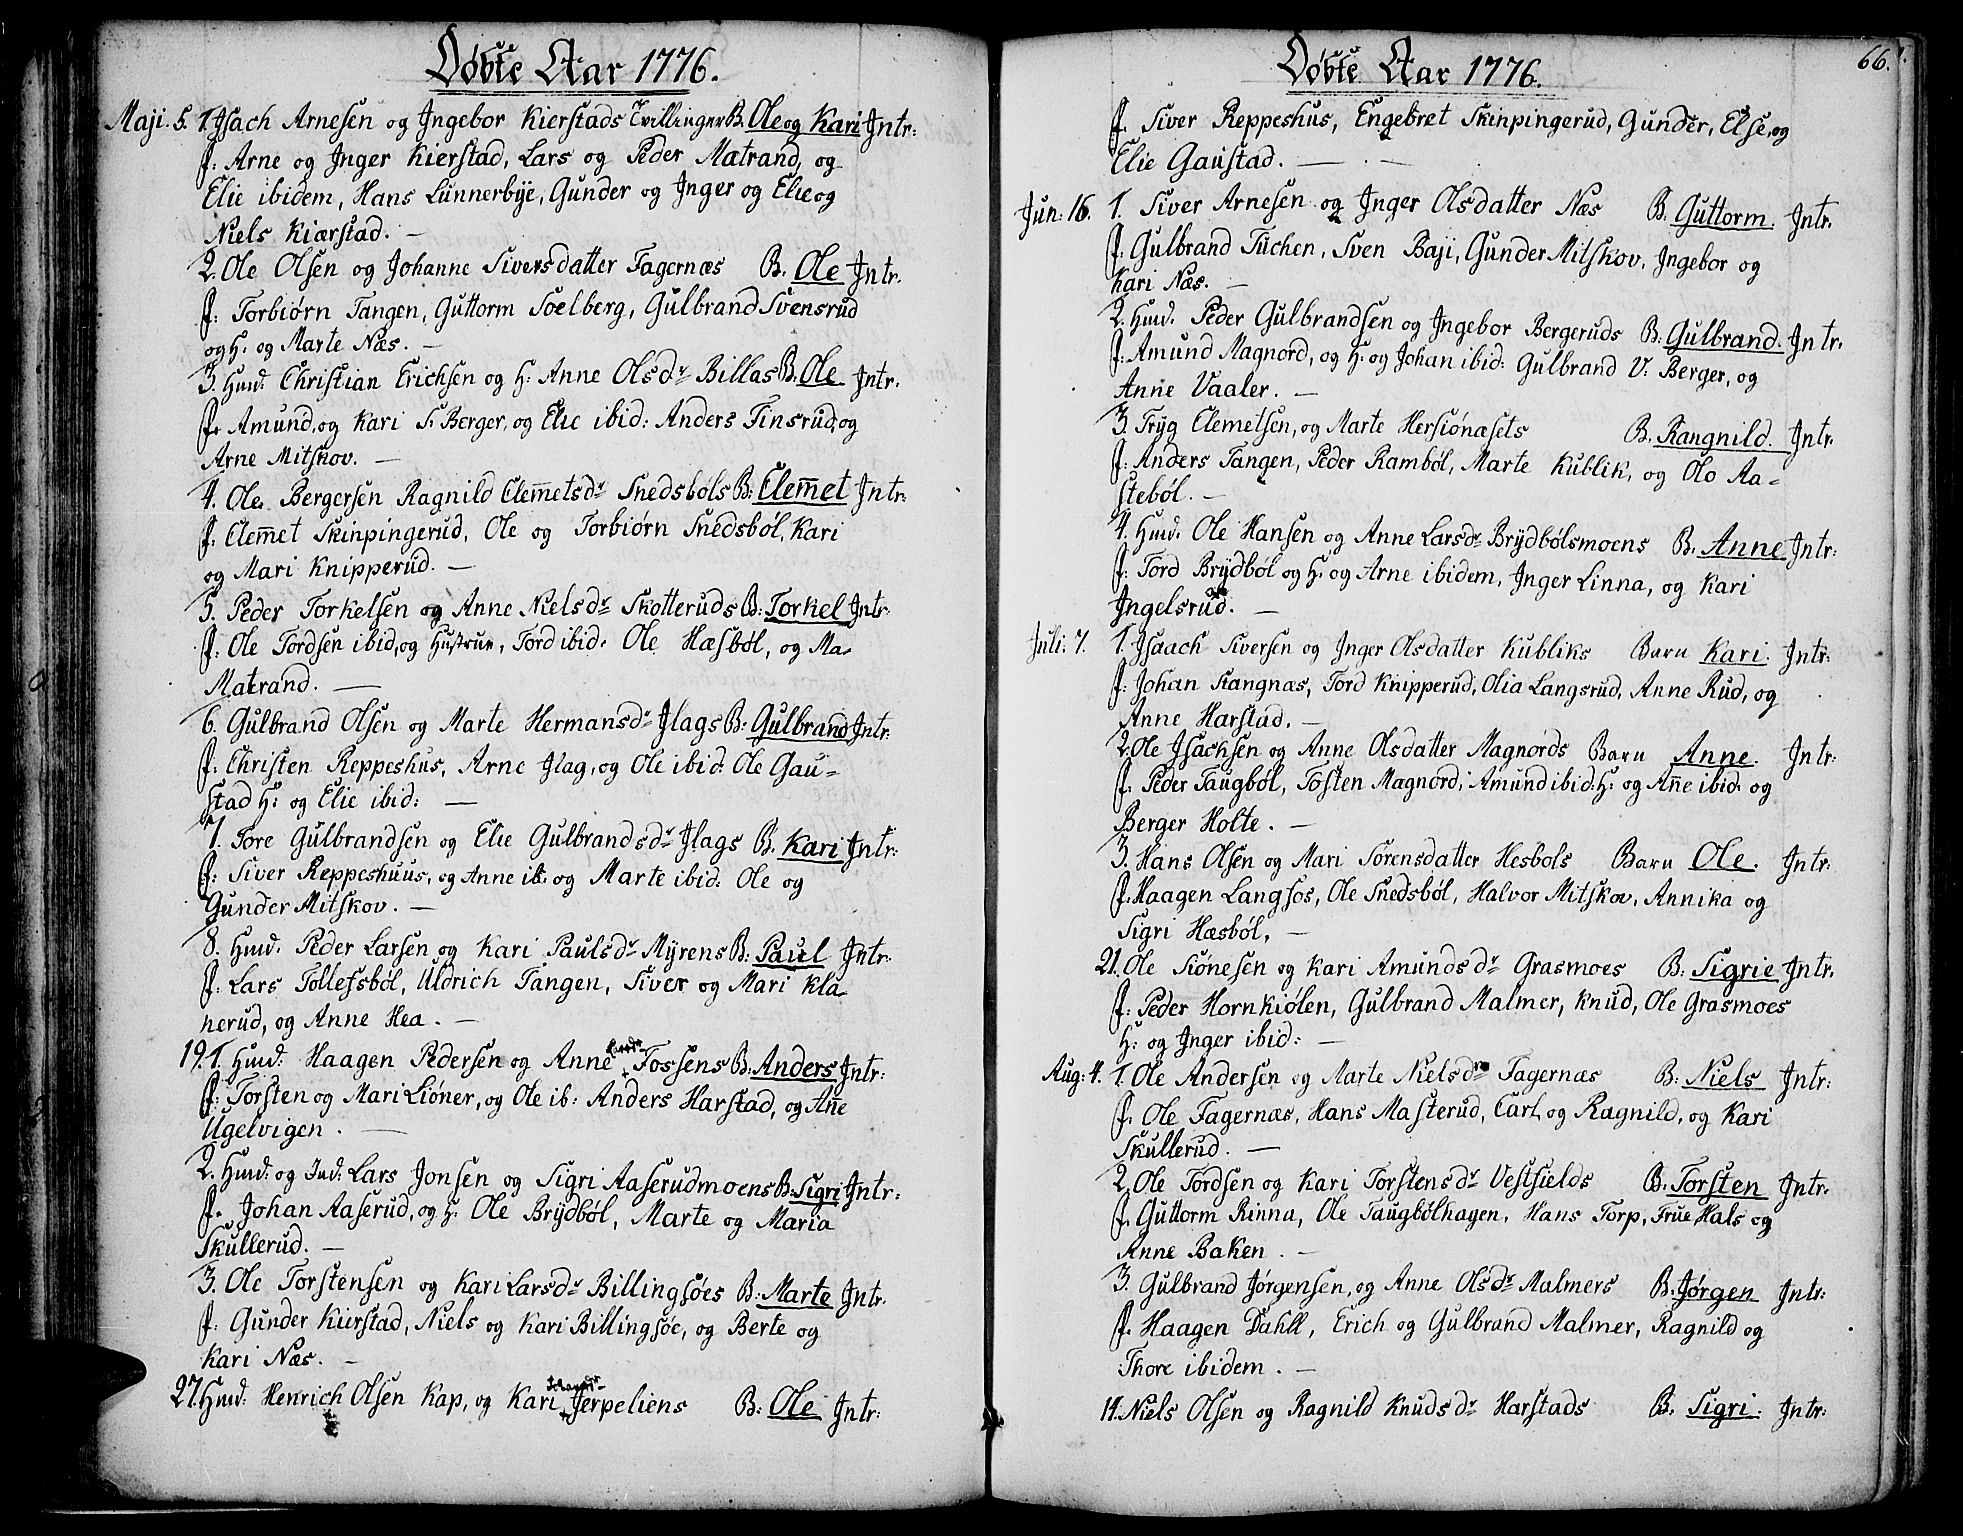 Døbte Aar 1776.
Maji. 5. 1. Isach Arnesen og Ingebor Kierstads Tvillinger B. Ole og Kari Intr:
f. Arne og Inger Kierstad, Lars og Peder Matrand, og
Elie ibidem, Hans Lunnerbye, Gunder og Inger og Elie og
Niels Kiærstad. —
2. Ole Olsen og Johanne Siversdatter Fagernæs B: Ole Intr.
f: Torbiørn Tangen, Guttorm Soelberg, Gulbrand Svensrud
og H. og Marte Næs. —
3. Hmd. Christian Erichsen og H: Anne Olsdr Billas B: Ole Intr.
f. Amund, og Kari S. Berger, og Elie ibid: Anders Finsrud, og
Arne Mitskov. —
4. Ole Bergersen Ragnild Clemetsdr Snedsbøls B: Clemet Intr:
f. Clemet Skinpingerud, Ole og Torbiørn Snedsbøl, Kari
og Mari Knipperud. —
5. Peder Torkelsen og Anne Nielsdr Skotteruds B: Torkel Intr.
f: Ole Tordsen ibid, og Hustrue, Tord ibid. Ole Hæsbøl, og Ma-
Matrand. —
6. Gulbrand Olsen og Marte Hermansdr Ilags B: Gulbrand Intr:
f. Christen Reppeshus, Arne Ilag, og Ole ibid. Ole Gau-
stad H: og Elie ibid: —
7. Tore Gulbrandsen og Elie Gulbrandsdr Ilags B. Kari Intr:
f: Siver Reppeshuus, og Anne ib: og Marte ibid: Ole og
Gunder Mitskov. —
8. Hmd. Peder Larsen og Kari Paulsdr Myrens B: Paul Intr.
f: Lars Tollefsbøl, Uldrich Tangen, Siver og Mari Kla-
nerud, og Anne Hea. —
19. 1. Hmd. Haagen Pedersen og Anne Fossens B: Anders Intr:
f: Torsten og Mari Liøner, og Ole ib: Anders Harstad, og Ane
Ugelvigen. —
2. Hmd: og Ind: Lars Jonsen og Sigri Aaserudmoens B: Sigri Intr:
f. Johan Aaserud, og H: Ole Brydbøl, Marte og Maria
Skullerud. —
3. Ole Torstensen og Kari Larsdr Billingsøes B: Marte Intr.
f: Gunder Kierstad, Niels og Kari Billingsøe, og Berte og
Kari Næs. —
27. Hmd: Henrich Olsen Kap, og Kari Jerpeliens B: Ole Intr:
Døbte Aar 1776.
66.
f. Siver Reppeshus, Engebret Skinpingerud, Gunder, Else, og
Elie Gaustad. —
Jun: 16. 1. Siver Arnesen og Inger Olsdatter Næs B. Guttorm. Intr.
f: Gulbrand Tuchen, Sven Baji, Gunder Mitskov, Ingebor og
Kari Næs. —
2. Hmd. Peder Gulbrandsen og Ingebor Bergeruds B: Gulbrand. Intr.
f: Amund Magnord, og H: og Johan ibid: Gulbrand V: Berger, og
Anne Vaaler. —
3. Tryg Clemetsen, og Marte Hersiønæsets B. Rangnild. Intr.
f: Anders Tangen, Peder Rambøl, Marte Kublik, og Olo Aa-
stebøl. —
4. Hmd. Ole Hansen og Anne Larsdr Brydbølsmoens B. Anne Intr:
f: Tord Brydbøl og H. og Arne ibidem, Inger Linna, og Kari
Ingelsrud. —
Juli: 7. 1. Isaach Siversen og Inger Olsdatter Kubliks Barn Kari. Intr:
f: Johan Stangnæs, Tord Knipperud, Olia Langsrud, Anne Rud, og
Anne Harstad. —
2. Ole Isachsen og Anne Olsdatter Magnords Barn Anne. Intr:
f. Peder Taugbøl, Tosten Magnord, Amund ibid: H: og Ane ibid. og
Berger Holte. —
3. Hans Olsen og Mari Sørensdatter Hesbols Barn Ole. Intr:
f. Haagen Langsos, Ole Snedsbøl, Halvor Mitskov, Annika og
Sigri Hæsbøl. —
21. Ole Sionesen og Kari Amundsdr Grasmoes B: Sigrie Intr.
f: Peder Hornkiølen, Gulbrand Malmer, Knud, Ole Grasmoes
H: og Inger ibid: —
Aug: 4. 1. Ole Andersen og Marte Nielsdr Fagernæs B: Niels Intr:
f. Ole Fagernæs, Hans Masterud, Carl, og Ragnild, og Kari
Skullerud. —
2. Ole Tordsen og Kari Torstensdr Vestfields B: Torsten Intr.
f. Guttorm Rinna, Ole Taugbølhagen, Hans Torp, Frue Hals og
Anne Baken. —
3. Gulbrand Jørgensen, og Anne Olsdr Malmers B. Jørgen Intr:
f. Haagen Dahll, Erich og Gulbrand Malmer, Ragnild og
Thore ibidem. —
14. Niels Olsen og Ragnild Knudsdr Harstads B. Sigri. Intr: